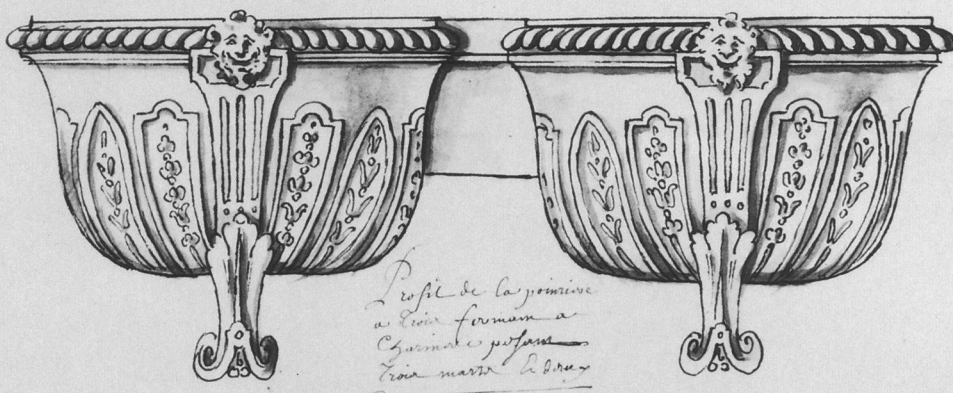 Profil de la poivriere
a trois fermam a
Charniere pesant
trois marcs les deux